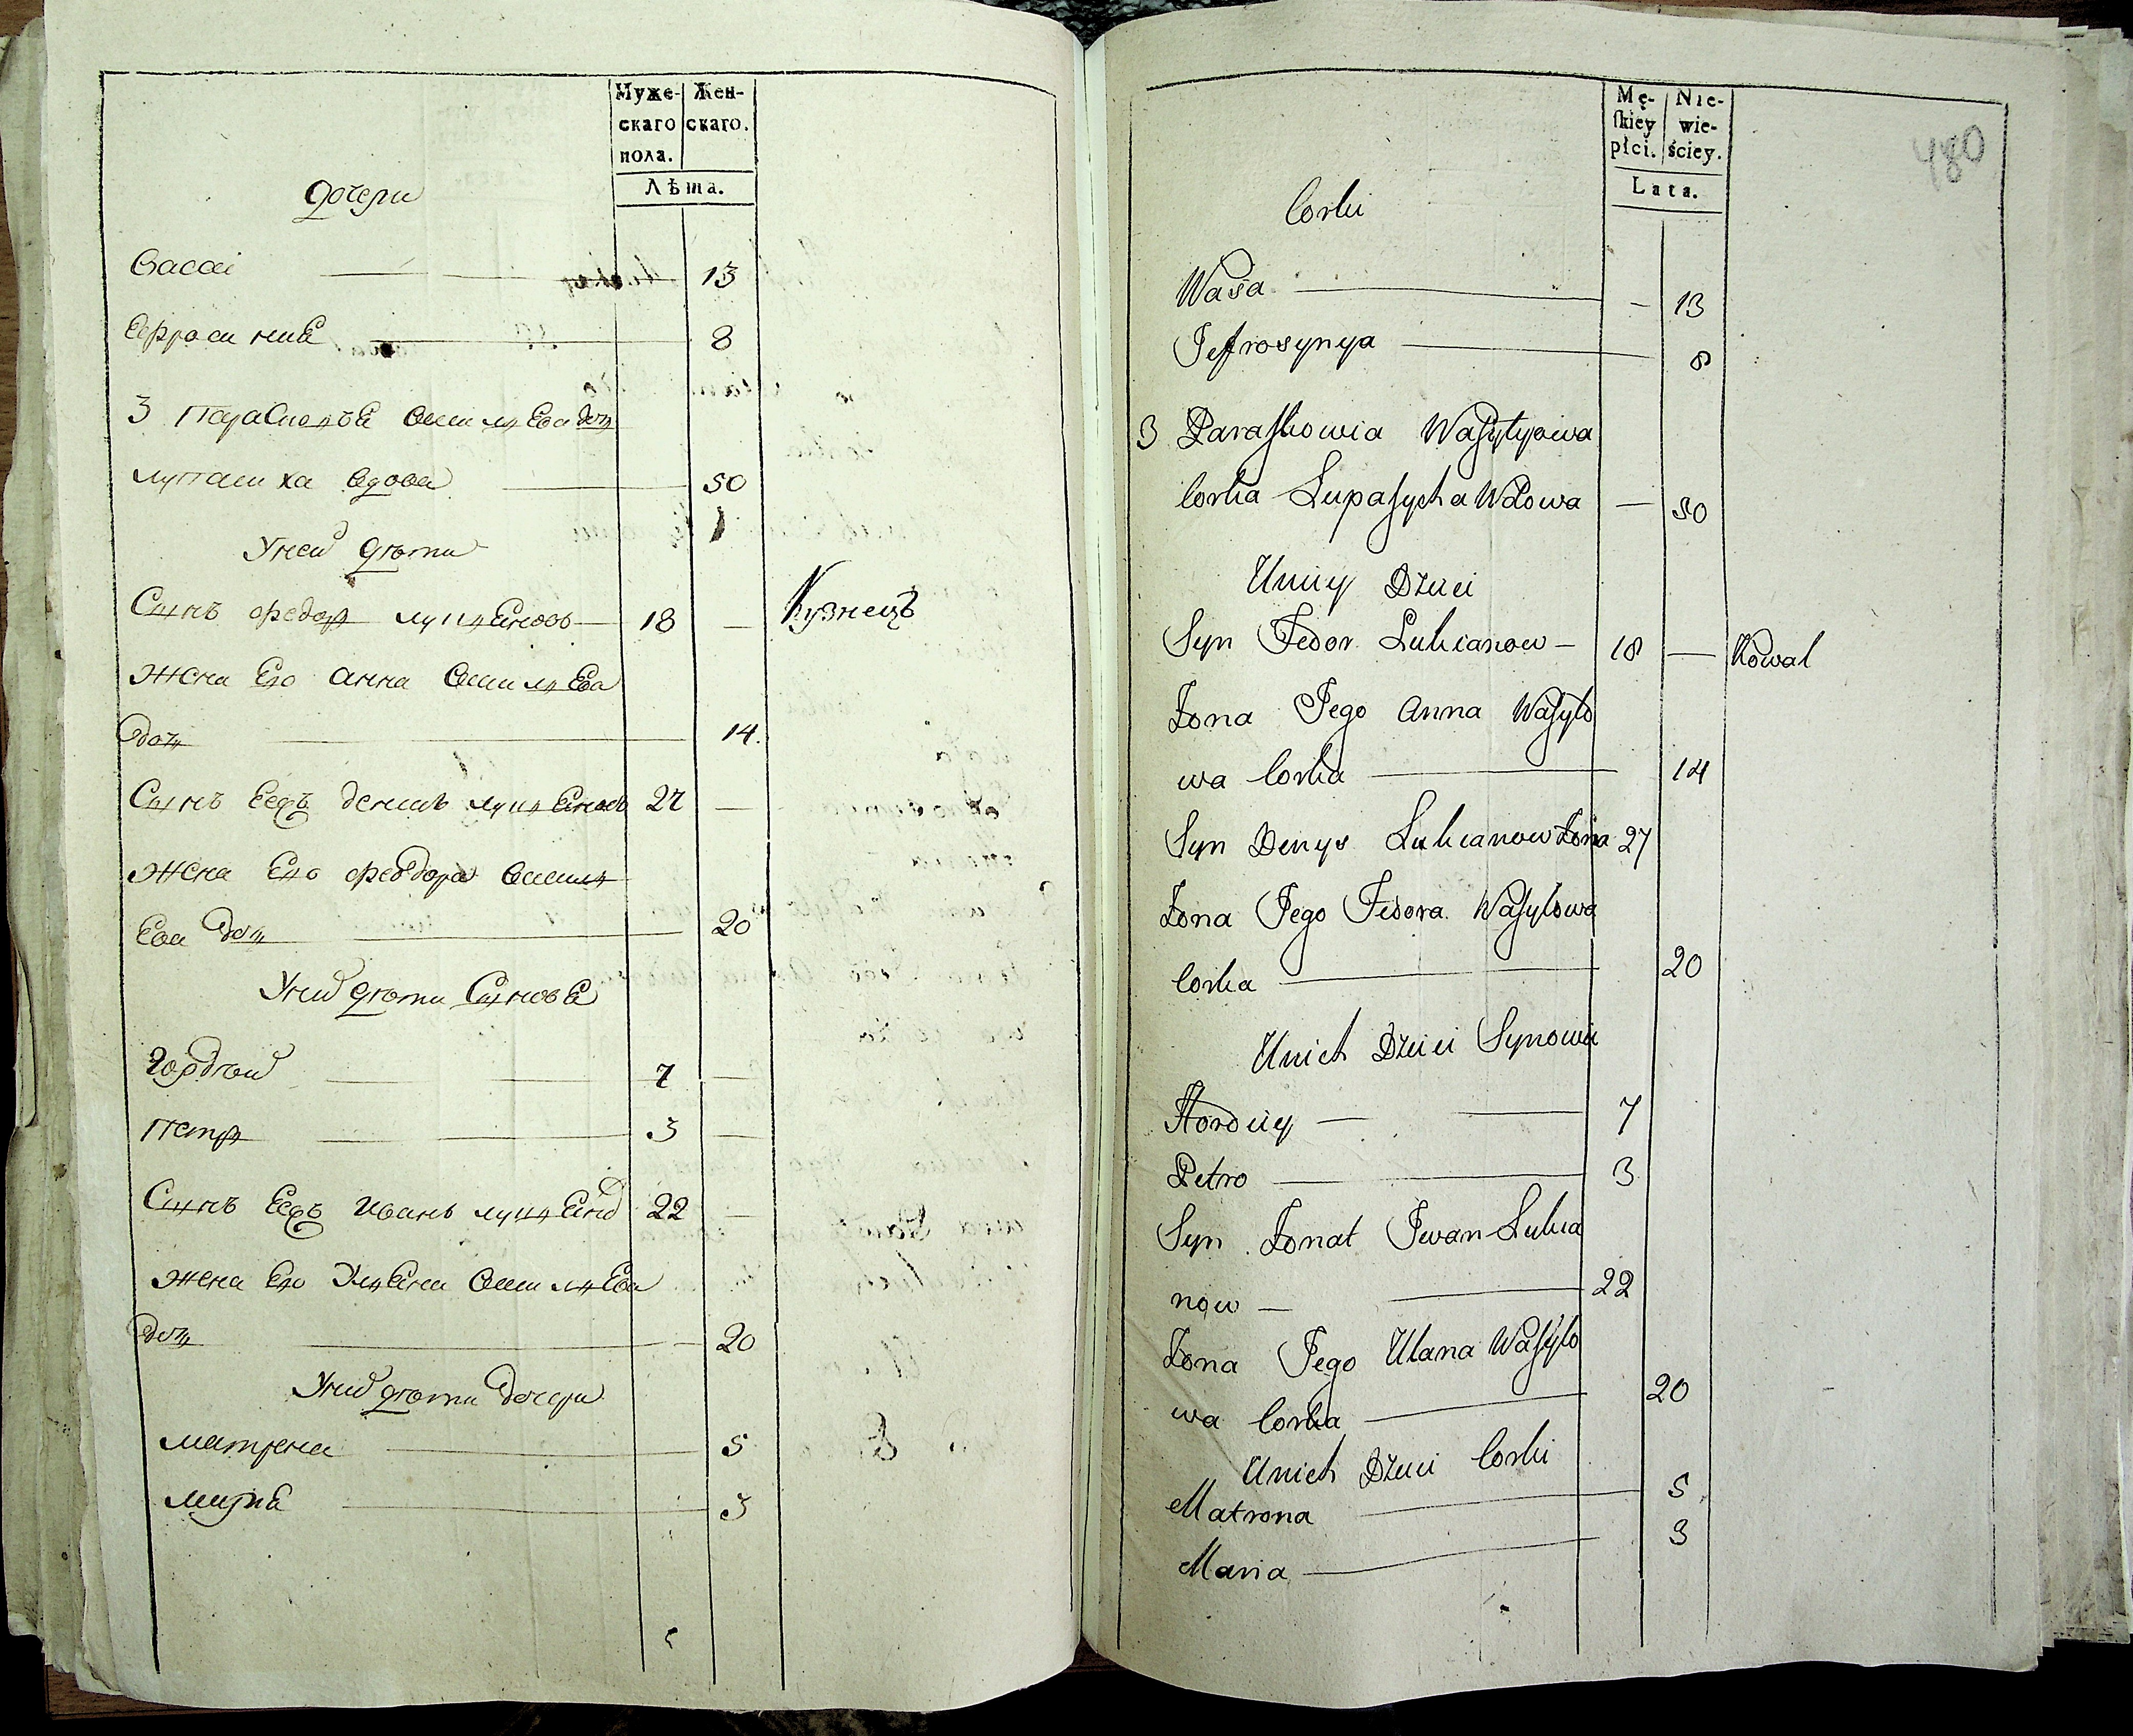 Муже-
скаго
пола.
Жен-
скаго.
Лѣта.
Дочери
Васса 13
Ефросиния 8
3 Парасковья Васильева дочь
Лупасиха вдова 50
У ней дѣти
Сынъ Федор Лукьяновъ 18 — Кузнецъ
жена его Анна Васильева
дочь 14.
Сынъ Ееже Денисъ Лукьяновъ 27 —
жена его Феодора Василь
ева дочь 20
У них дѣти Сыновья
Гордѣй 7 —
Петр 3 —
Сынъ Ееже Иванъ Лукьянов 22 —
жена его Ульяна Васильева
дочь 20
У них дѣти дочери
Матрена 5
Мария 3
480
Mę-
skiey
płci.
Nie-
wie-
ściey.
Lata.
Corki
Wasa — 13
Jefrosynya 8
3 Paraskowia Wasylyowa
Corka Lupasycha Wdowa — 50
Uniey Dzieci
Syn Fedor Lukianow — 18 — Kowal
Żona Jego Anna Wasylo
wa Corka 14
Syn Denys Lukianow Żona 27
Żona Jego Fedora Wasylowa
Corka 20
Unich Dzieci Synowie
Hordiey 7
Petro 3
Syn Żonat Iwan Lukia
now — 22
Żona Jego Ulana Wasylo
wa Corka 20
Unich Dzieci Corki
Matrona 5
Maria 3